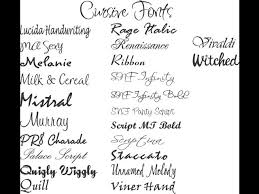 Cursive Fonts
Lucida Handwriting
MLC Sexy
Melanie
Milk & Cereal
Mistral
Murray
PR8 Charade
Palace Script
Quigly Wiggly
Quill
Rage Italic
Renaissance
Ribbon
SNF Infinity
SNF Infinity BOLD
SNF Purty Script
Script MT Bold
Scriptina
Staccato
Unnamed Melody
Viner Hand
Vivaldi
Witched